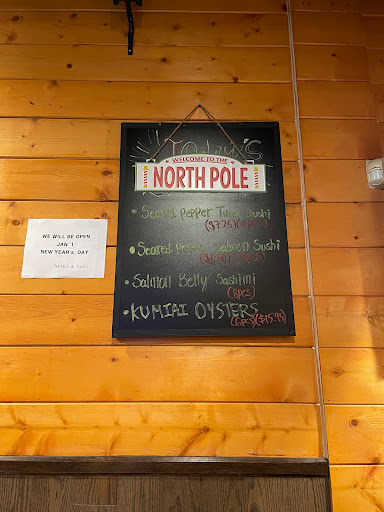 Today's
WELCOME TO THE
NORTH POLE
• Seared Pepper Tuna Sushi
($7.25)(2pcs)
• Seared Pepper Salmon Sushi
• Salmon Belly Sashimi
(8pcs)
• KUMIAI OYSTERS
(6pcs)($15.95)
WE WILL BE OPEN
JAN 1
NEW YEAR's DAY